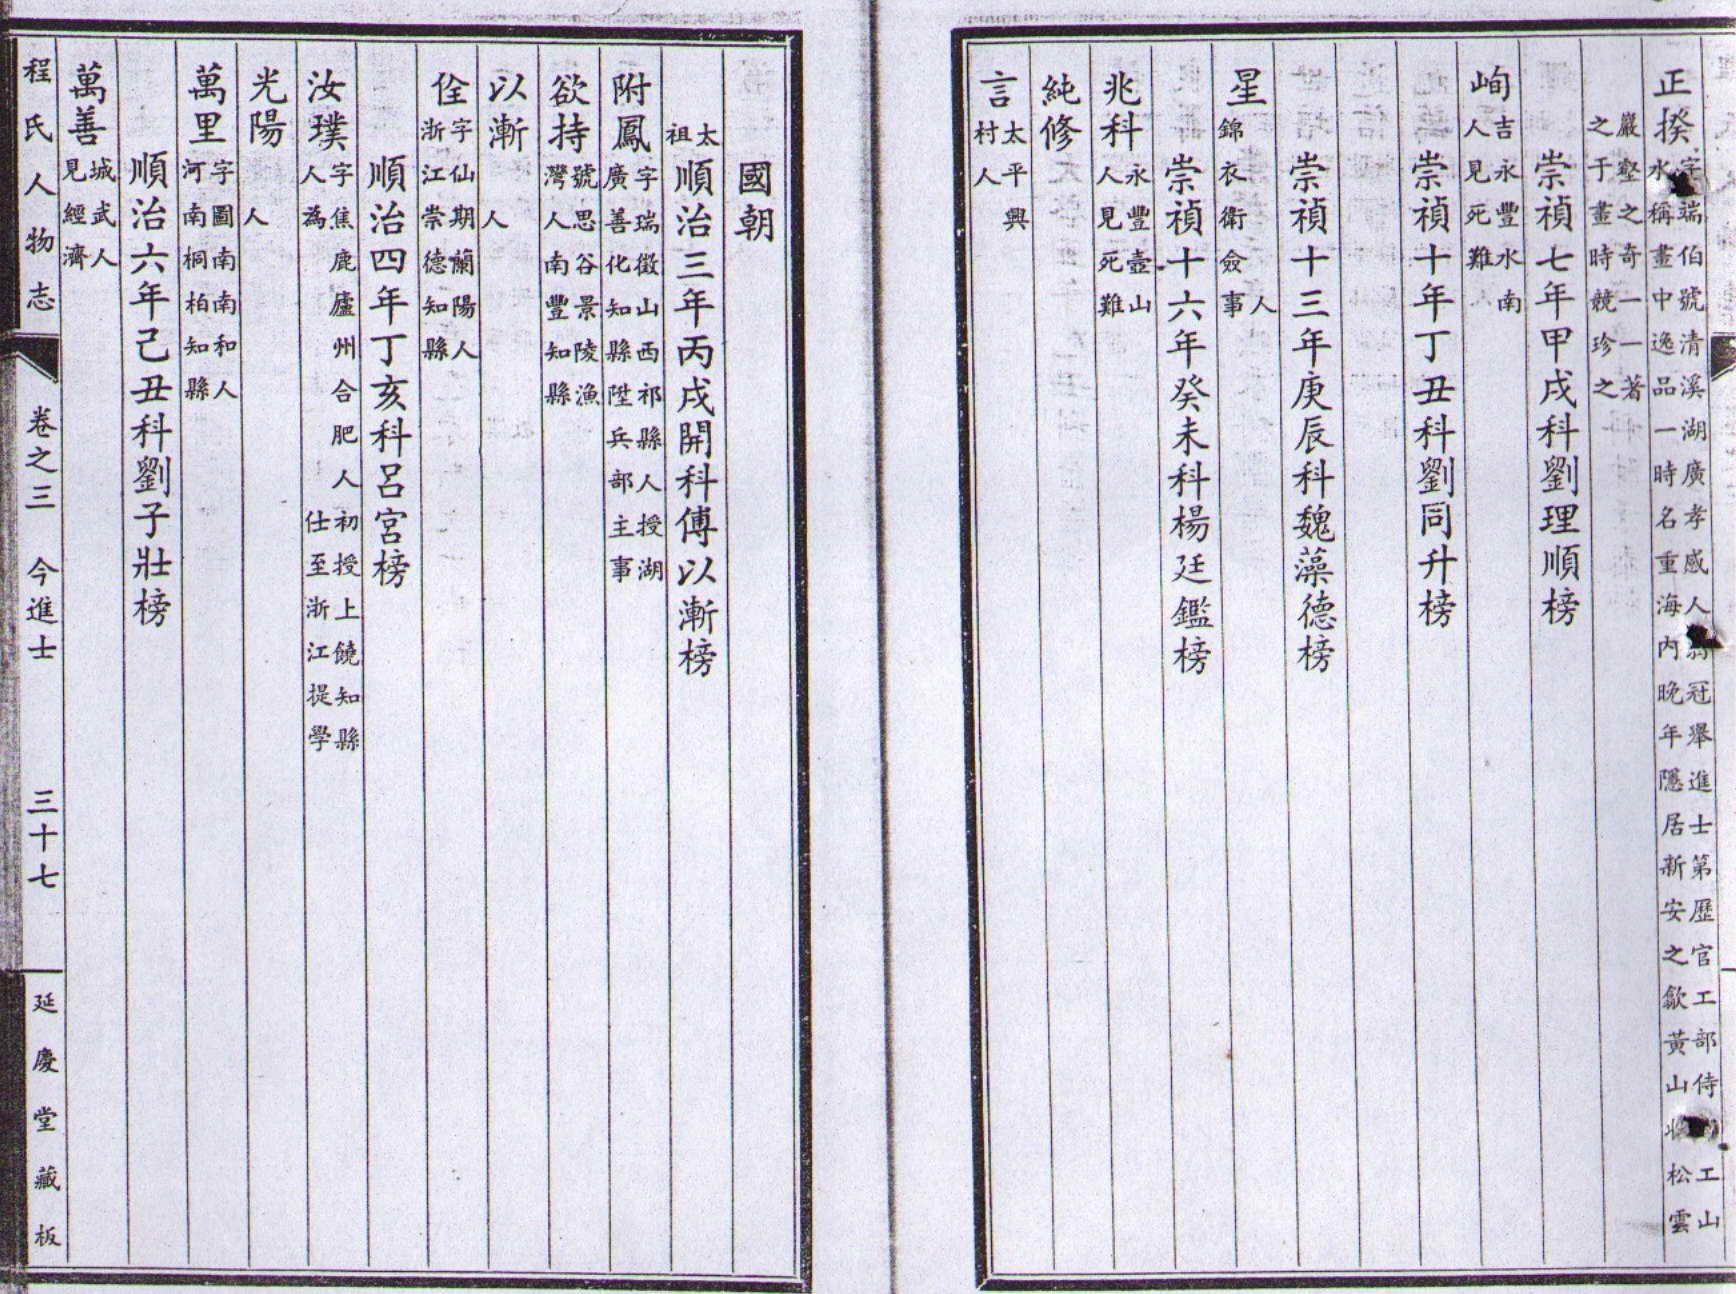 正揆字端伯號清溪湖廣孝感人弱冠舉進士第歷官工部侍工山
水稱畫中逸品一時名重海內晚年隱居新安之歙黃山收松雲
巖壑之奇一一著
之于畫時競珍之
崇禎七年甲戌科劉理順榜
峋吉永豐水南
人見死難
崇禎十年丁丑科劉同升榜
崇禎十三年庚辰科魏藻德榜
星人
錦衣衛僉事
崇禎十六年癸未科楊廷鑑榜
兆科永豐壼山
人見死難
純修
言太平興
村人
國朝
太
祖
順治三年丙戌開科傅以漸榜
附鳳字瑞徵山西祁縣人授湖
廣善化知縣陞兵部主事
欲持號思谷景陵漁
灣人南豐知縣
以漸
人
佺字仙期蘭陽人
浙江崇德知縣
順治四年丁亥科呂宮榜
汝璞字焦鹿廬州合肥人初授上饒知縣
人為仕至浙江提學
光陽
人
萬里字圖南南和人
河南桐柏知縣
順治六年己丑科劉子壯榜
萬善城武人
見經濟
程氏人物志 卷之三 今進士 三十七 延慶堂藏板